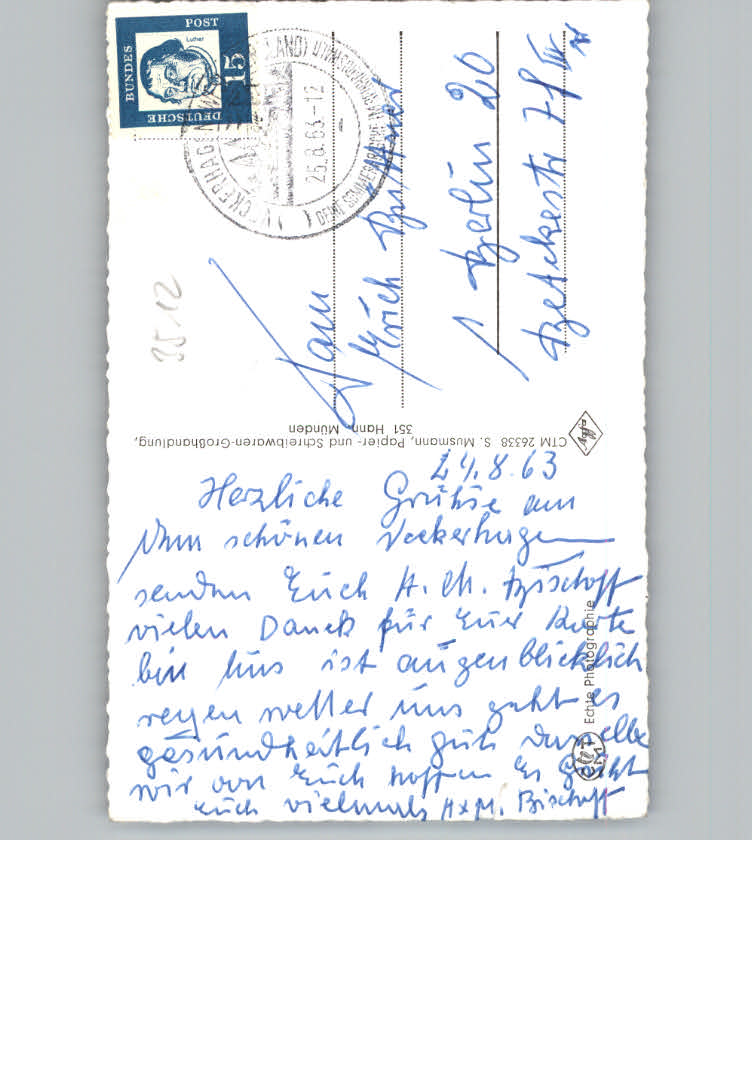 DEUTSCHE
BUNDES
POST
15
Luther
26.8.63-12
35 12
Fam
Erich
Berlin 20
CTM 26338 S. Musmann, Papier- und Schreibwaren-Großhandlung,
351 Hann. Münden
Agfa
24.8.63
Herzliche Grühse aus
schönen Veckerhagen
senden Euch A. M. Bischoff
vielen Danck für Eure Karte
bei Uns ist augenblicklich
regen wetter uns geht es
gesundheitlich gut dasselbe
wir von Euch hoffen Es Grüßt
Euch vielmals A + M. Bischoff
Echte Photographie